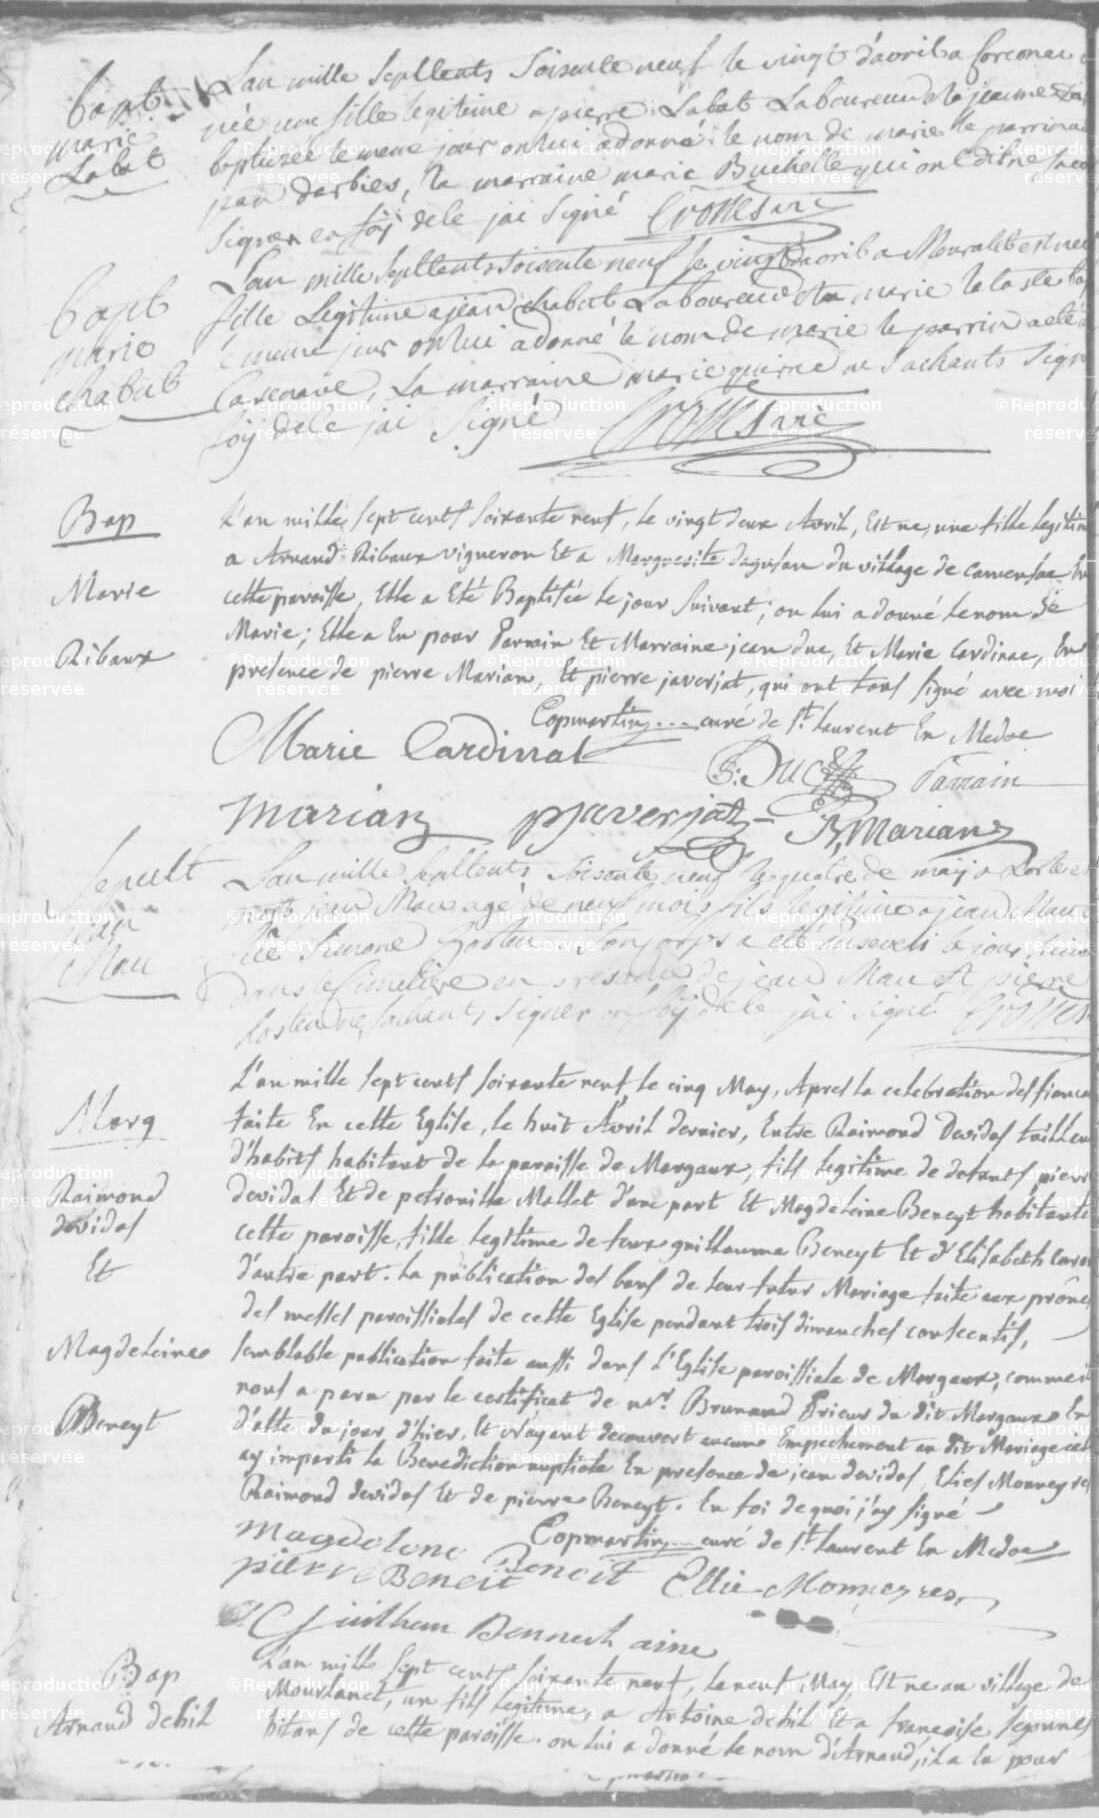 bapt
marie
Labat
L'an mille septcents soisente neuf le vingt d'avril a corconac
née une fille legitime a pierre Labat Laboureur et a jeanne
baptizée le meme jour on lui a donné le nom de marie le parrin a
jean darbies, la marraine marie Buchelle qui ont dit ne
signer en foy de le jai signé
bapt
marie
chabat
L'an mille septcents soisente neuf le vingt d'avril a est nee
fille Legitime a jean chabat Laboureur et a marie
le meme jour on lui a donné le nom de marie le parrin a eté
Casenave, la marraine marie ne sachants sign
foy de le jai signé
Bap
Marie
Ribaux
L'an mille sept cents soixante neuf, le vingt deux Avril, Est ne, une fille legitim
a Arnaud Ribaux vigneron Et a Marguerite du village de Camensac En
cette paroisse, Elle a Eté Baptisée le jour suivant; on lui a donné le nom de
Marie; Elle a Eu pour Parrain Et Marraine jean duc, Et Marie Cardinac, En
presence de pierre Marian, Et pierre javerjat, qui ont tous signé avec moi
Copmartin curé de St laurent En Medoc
Marie Cardinal
Duc Parrain
Marian pjaverjat Marian
sepult
jean
Mau
L'an mille septcents soisente neuf le quatre de may a
mort jean Mau agé de neuf mois fils legitime a jean Mau
de Simone son corps a eté enseveli le jour
dans le cimetiere en presence de jean Mau et pierre
ne sachants signer en foy de le jai signé
Marg
Raimond
devidas
Et
Magdeleine
Beneyt
L'an mille sept cents soixante neuf, le cinq May, Apres la celebration des fianca
faite En cette Eglise, le huit Avril dernier, Entre Raimond Devidas tailleur
d'habits habitant de la paroisse de Margaux, fils legitime de defunts pierre
devidas Et de petronille Mallet d'une part Et Magdeleine Beneyt habitante
cette paroisse, fille legitime de feux guillaume Beneyt Et d'Elisabeth
d'autre part. la publication des bans de leur futur Mariage faite aux prônes
des messes paroissiales de cette Eglise pendant trois dimanches consecutifs,
semblable publication faite aussi dans l'Eglise paroissiale de Margaux, comme il
nous a paru par le certificat de Mr. Brunaud Prieur du dit Margaux En
d'atte du jour d'hier, Et n'ayant decouvert aucun Empechement au dit Mariage
ay imparti la Benediction nuptiale En presence de jean devidas, Elies Monneyres
Raimond devidas Et de pierre Beneyt. En foi de quoi j'ay signé
Copmartin curé de St laurent En Medoc
Magdelene Benoit
pierre Beneit Ellie Monneyres
Guilhem Bennech aine
Bap
Arnaud debil
L'an mille sept cents soixante neuf, le neuf May, Est ne au village de
Mourlanet, un fils legitime, a Antoine debil Et a françoise
bitans de cette paroisse. on lui a donné le nom d'Arnaud, il a Eu pour
©Reproduction
réservée